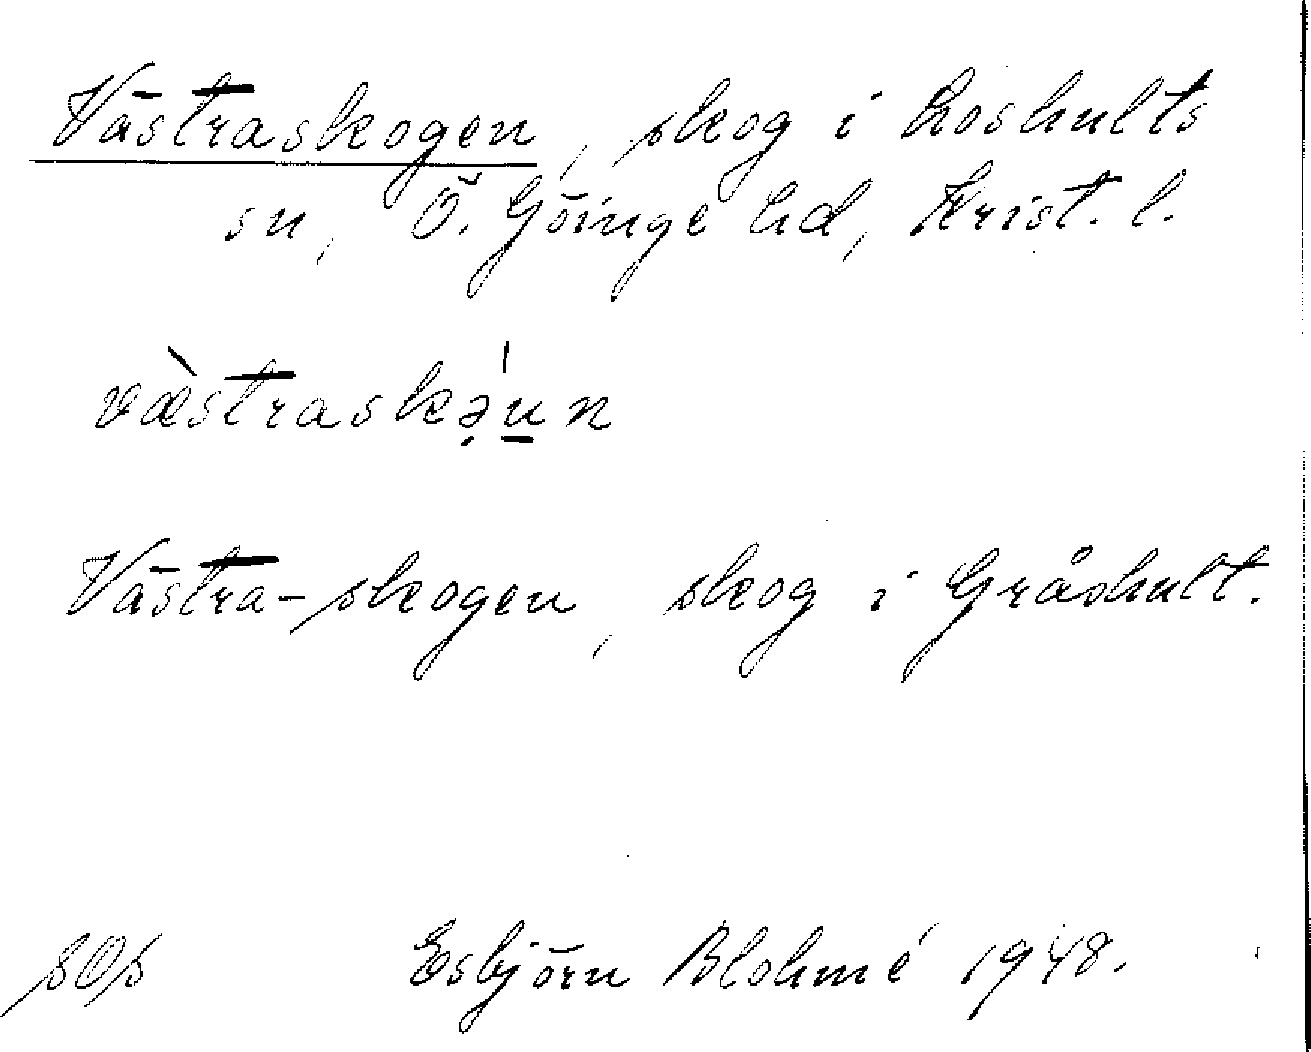 Västraskogen, skog i Loshults
sn, Ö. Göinge hd, Krist. l.
væ̀straskə̣́u̱n
Västra-skogen, skog i Gråshult.
Esbjörn Blohmé 1948.